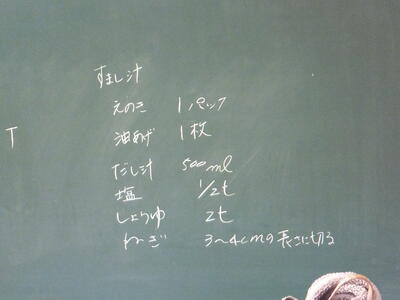 すまし汁
えのき 1パック
油あげ 1枚
T
だし汁 500ml
塩 1/2t
しょうゆ 2t
ねぎ 3〜4cmの長さに切る